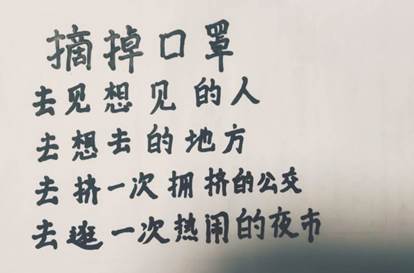 摘掉口罩
去见想见的人
去想去的地方
去挤一次拥挤的公交
去逛一次热闹的夜市